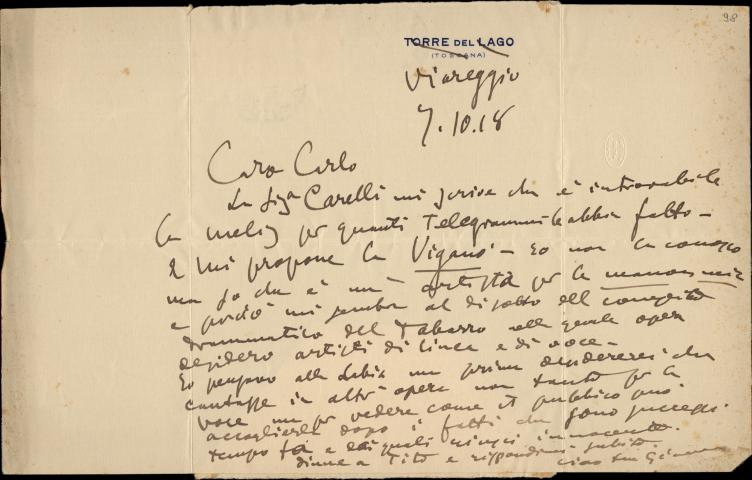 98
TORRE DEL LAGO
(TOSCANA)
Viareggio
7.10.18
Caro Carlo
La Sigra Carelli mi scrive che è introvabile
la Melis per quanti telegrammi le abbia fatto -
e mi propone la Viganò - Io non la conosco
ma so che è un' artista per la
e perciò mi sembra al disotto del compito
drammatico del Tabarro nella quale opera
desidero artisti di linea e di voce -
Io pensavo alla Labia ma prima desidererei che
cantasse in altr' opera non tanto per la
voce ma per vedere come il pubblico può
accoglierla dopo i fatti che sono successi
tempo fa e dai quali uscì innocente.
dinne a Tito e rispondimi subito.
ciao tuo Giacomo